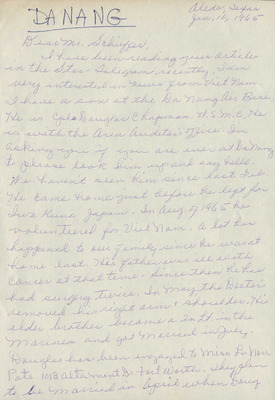 DA NANG
Aledo, Texas
Jan, 10, 1965
Dear Mr. Schiefer,
I have been reading your articles
in the Star Telegram, recently. I am
very interested in news from Viet Nam.
I have a son at the Da Nang Air Base
He is Cpl. Douglas Chapman. U.S.M.C. He
is with the Area Auditor's Office. I'm
asking you if you are ever at Da Nang
to please look him up and say hello.
We haven't seen him since last Feb.
He came home just before he left for
Iwa Kuna Japan. In Aug. of 1965 he
volunteered for Viet Nam. A lot has
happened to our family since he was at
home last. His father was ill with
cancer at that time. Since then he has
had surgery twice. In May, the Doctor
removed his right arm & shoulder. His
elder brother became a in the
Marines and got married in July.
Douglas has been engaged to Miss
Pate 1013 Dr. Fort Worth. They plan
to be married in April when Doug